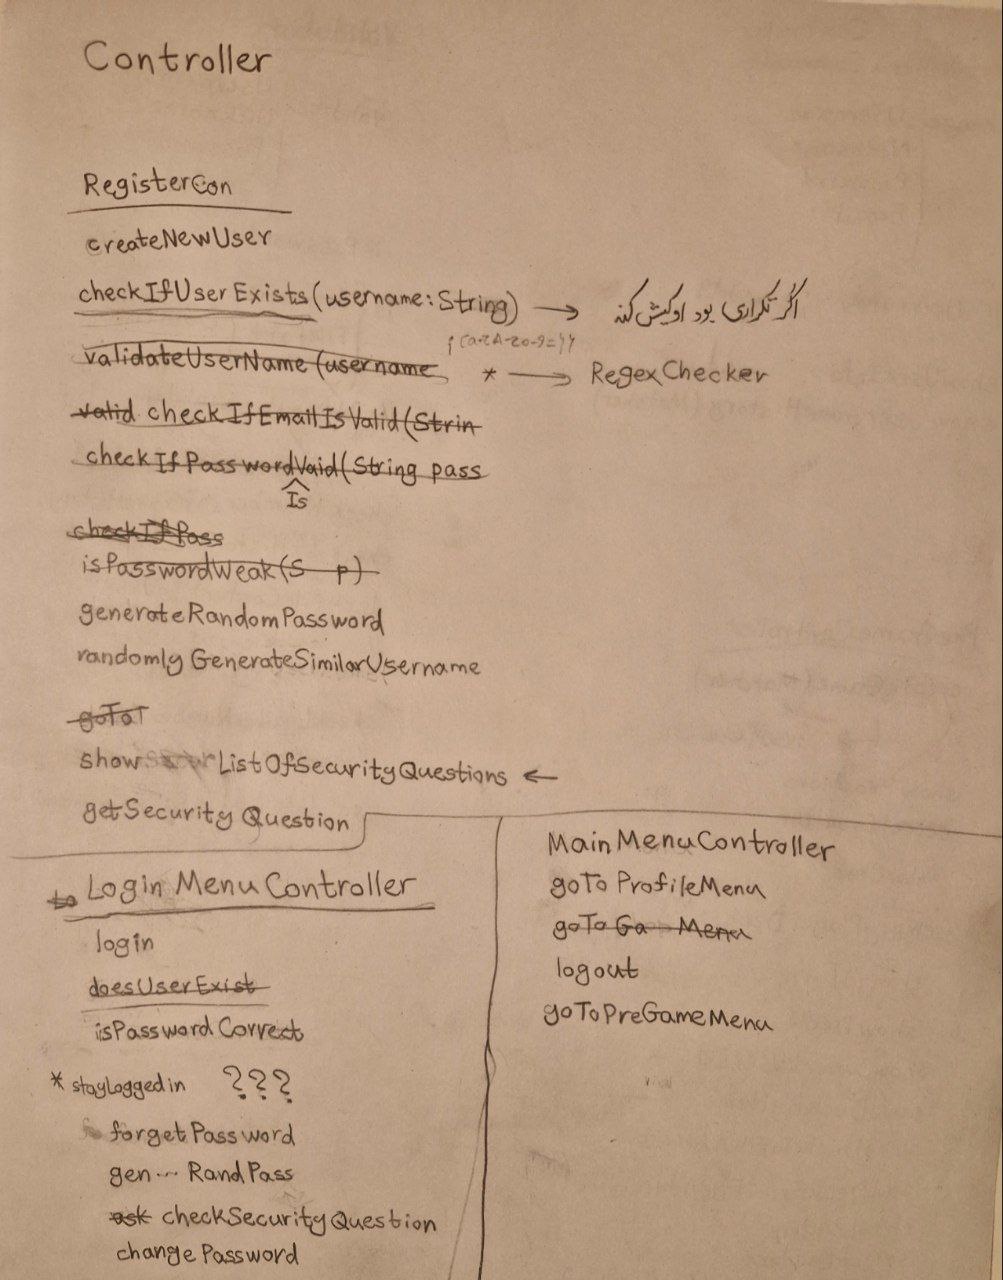 Controller
RegisterCon
createNewUser
checkIfUserExists(username:String) → اگر تکراری بود اوکیش کنه
validateUserName(username
* → RegexChecker
valid checkIfEmailIsValid(Strin
checkIfPasswordVaid(String pass
Is
checkIfPass
isPasswordWeak(S p)
generateRandomPassword
randomlyGenerateSimilarUsername
goToT
show ListOfSecurityQuestions ←
getSecurityQuestion
to Login MenuController
login
doesUserExist
isPasswordCorrect
* stayLoggedin ???
forgetPassword
gen... RandPass
ask checkSecurityQuestion
changePassword
MainMenuController
goTo ProfileMenu
goTo Ga Menu
logout
goToPreGameMenu